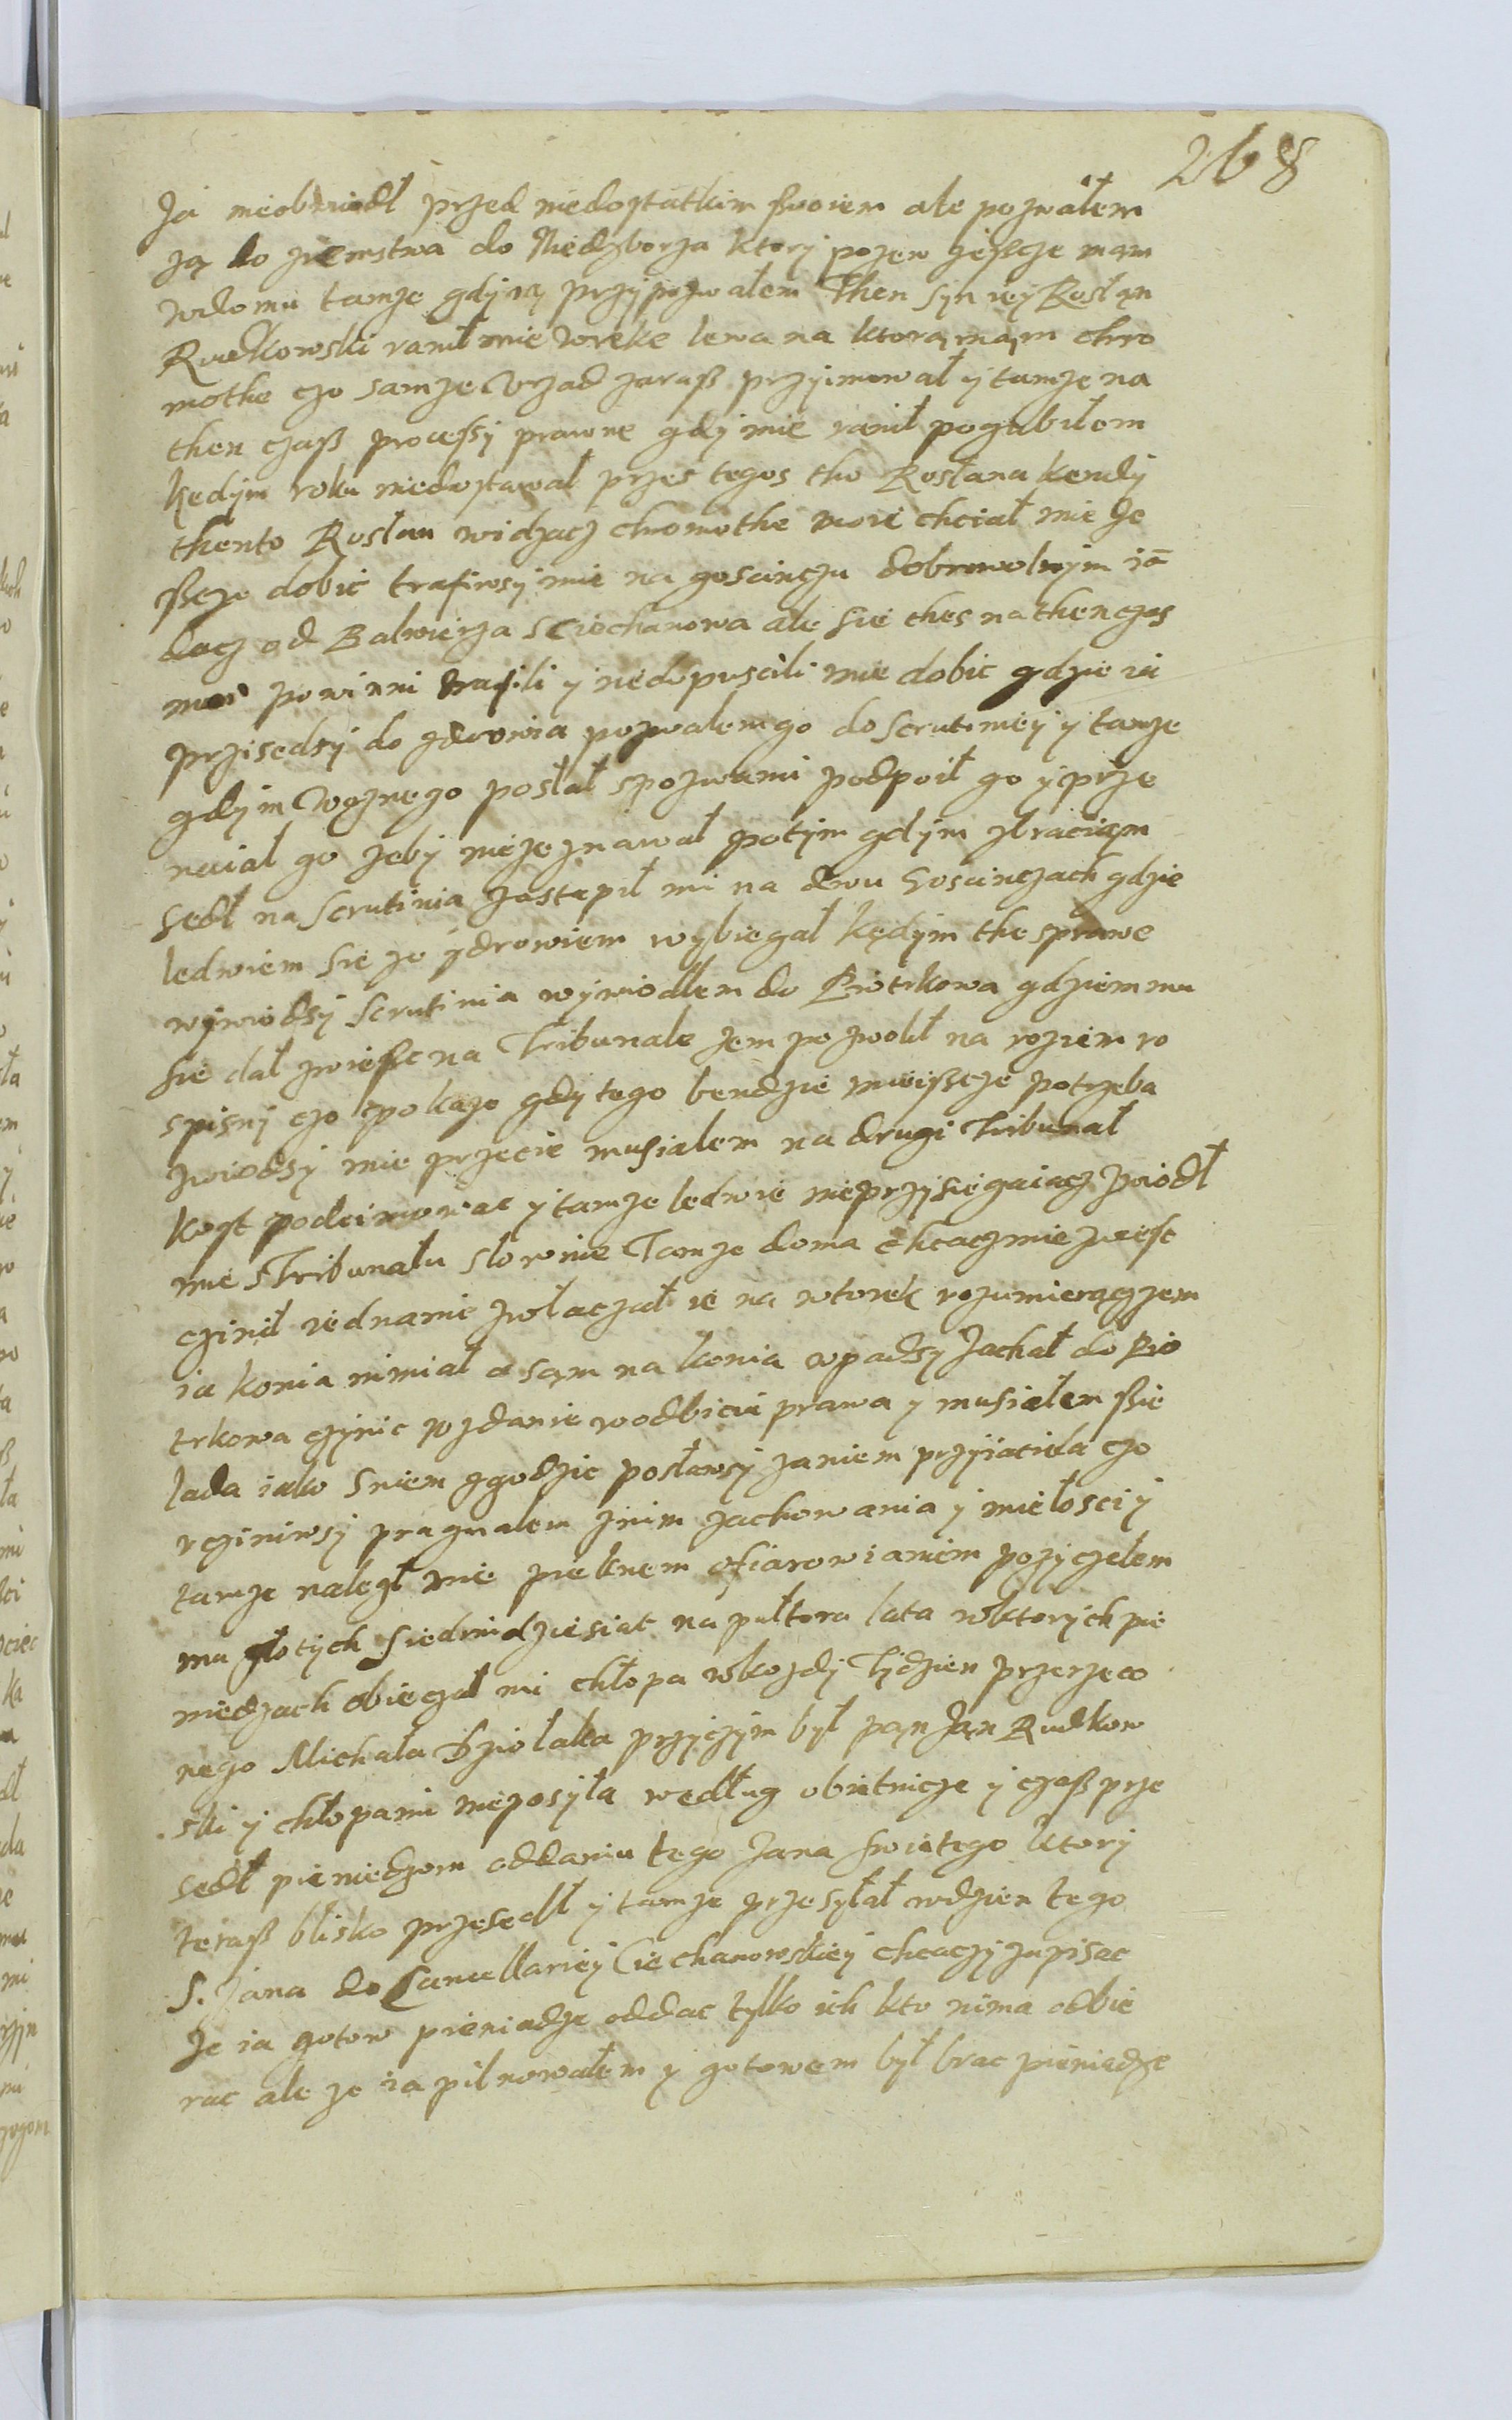 268
Ja nieobwiodł przed niedostatkim swoiem ale pozwałem
ją do ziemstwa do Niedzborza ktorj pozew jeßcze mąm
wdomu tamze gdym ią przypozwałem Then syn iey Rosłąn
Rudkowski ranił mie wręke lewa na ktorą mąm chro
mothe czo samze Vrzad zaraß przyimował y tamze na
then czaß processy prawne gdy mie ranił pogubiłem
kędym roku niedostawał przes tegos tho Rosłana kendy
thento Rosłan widzacz chromothe moie chciał mie Je
ßcze dobic trafiwsy mie na goscinczu dobrowolnym ia
dacz od Balwierza s Ciechanowa ale sie thes na thenczas
moi powinni trafili y niedopuscili mie dobic gdzie ia
przisedsy do zdrowia pozwalemgo do Scrutiniey y tamze
gdym Woznego posłał spozwami podpoił go y prze
naiał go zeby nie zeznawał potym gdym zbraciąm
sedł na Scrutinia zastapił mi na dwu Goscinczach gdzie
ledwiem sie ze zdrowiem wybiegał kędym the sprawe
wywiodsy Scrutinia wywiodłem do Piotrkowa gdziem mu
sie dał zwiesc na Tribunale zem pozwolił na roziem ro
spisny czo pokaze gdy tego bendzie mieißcze potrzeba
zwiodsy mie przecie musialem na drugi Tribunał
kost podeimowac y tamze ledwie nieprzysięgaiacz zwiodł
mie s Tribunału słownie Tamze doma chcacz mie zwiesc
czinił iednanie zwłaczał ie na wtorek rozumieiączem
ia konia nimiał a sąm na konia wpadsy Jachał do Pio
trkowa czynic wzdanie wodbiciu prawa y musiałem ßie
lada iako sniem zgodzic posławsy zaniem przyiaciela czo
vcziniwsy pragnalem znim zachowania y miełosci y
tamze naległ mie pieknem ofiarowianiem pozyczełem
mu złotych siedmidziesiat na pułtora lata wktorych pie
niedzach obieczał mi chłopa wkozdy Tydzien przerzeco
nego Michała Dziołaka przyczym był pąn Jąn Rudkow
ski y chłopa mi nieposyła według obietnicze y czaß prze
sedł pieniedzom oddaniu tego Jana swietego ktory
teraß blisko przesedł y tamze przesyłał wdzien tego
S. Jana do Cancellariey Ciechanowskiey chcaczy zapisac
Ze ia gotow pieniadze oddac tylko ich kto nima odbie
rac ale ze ia pilnowałem y gotowem był brac pieniedze